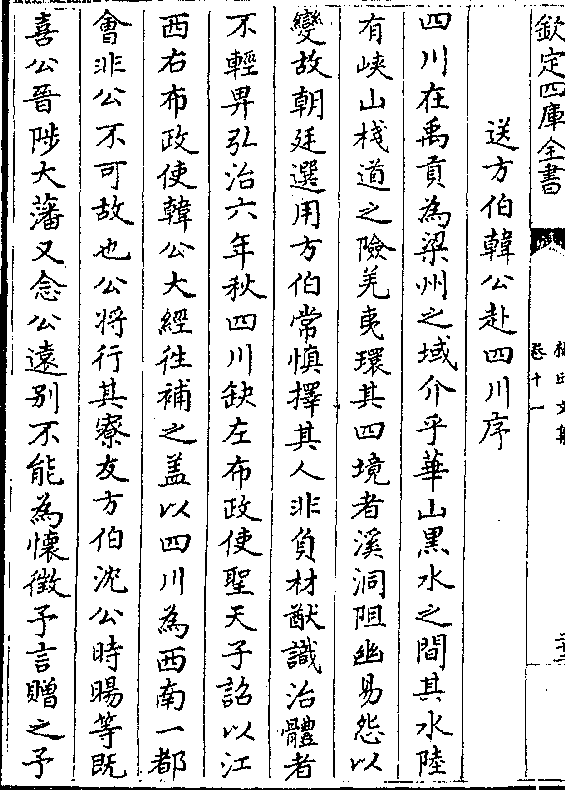 欽定四庫全書
卷十一
送方伯韓公赴四川序
四川在禹貢為梁州之域介乎華山黒水之間其水陸
有峽山棧道之險羌夷環其四境者溪洞阻幽易怨以
變故朝廷選用方伯常慎擇其人非負材猷識治體者
不輕畀弘治六年秋四川缺左布政使聖天子詔以江
西右布政使韓公大經徃補之盖以四川為西南一都
會非公不可故也公将行其寮友方伯沈公時暘等既
喜公晉陟大藩又念公逺别不能為懷徵予言贈之予